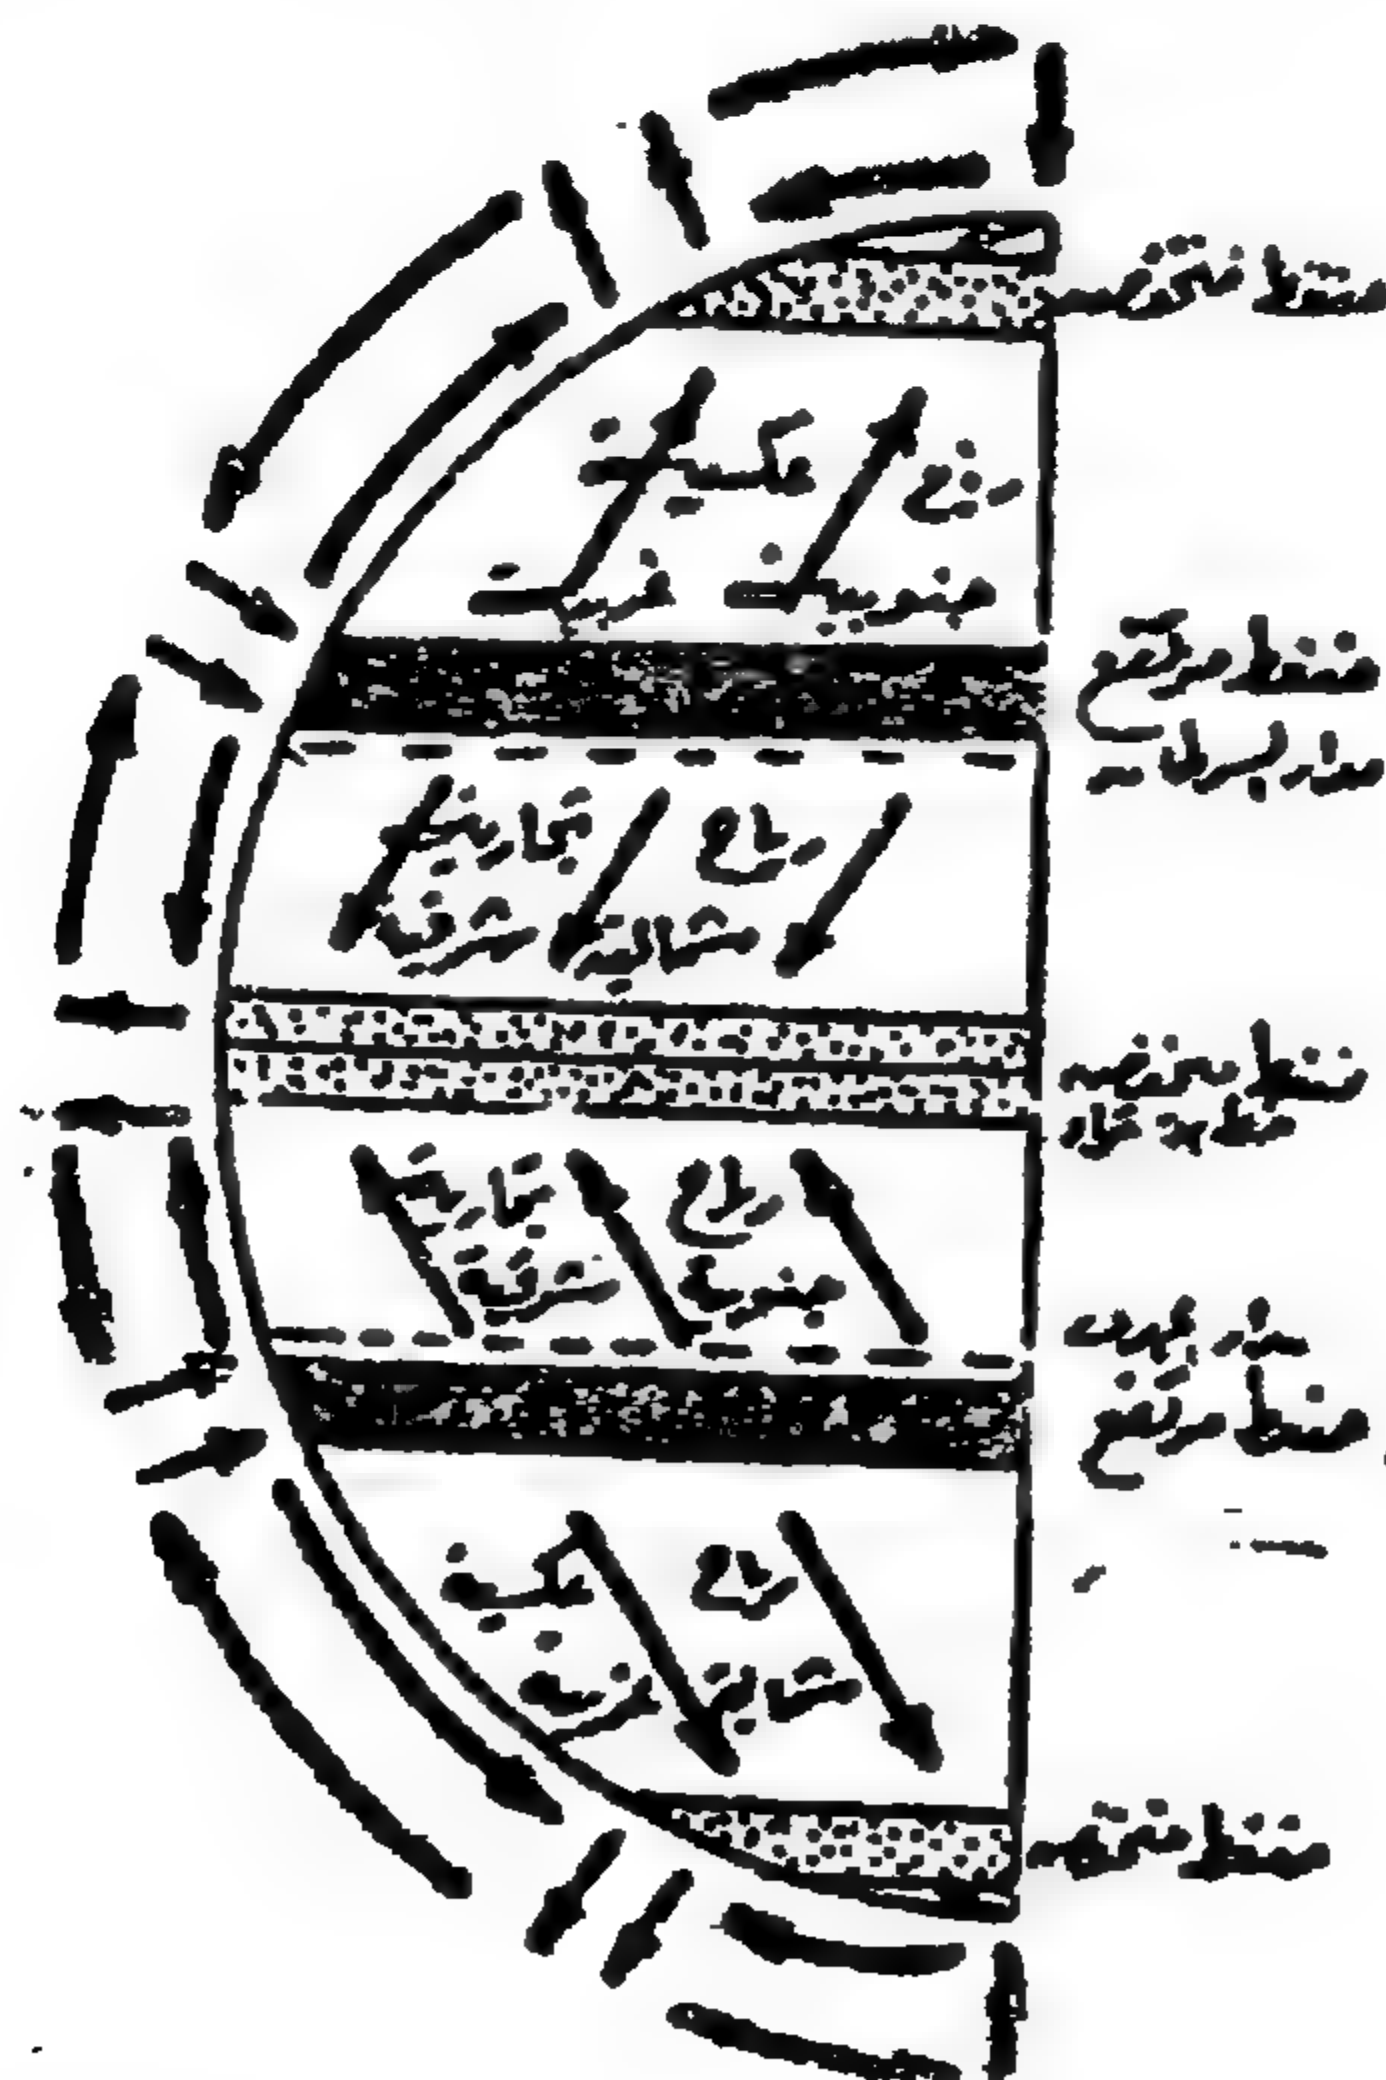 ضغط منخفض
رياح عكسية
جنوبية غربية
ضغط مرتفع
مدار السرطان
رياح تجارية
شمالية شرقية
ضغط منخفض
خط الاستواء
رياح تجارية
جنوبية شرقية
مدار الجدى
ضغط مرتفع
رياح عكسية
شمالية غربية
ضغط منخفض